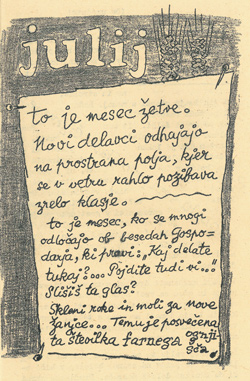 julij
to je mesec žetve.
Novi delavci odhajajo
na prostrana polja, kjer
se v vetru rahlo pozibava
zrelo klasje.
to je mesec, ko se mnogi
odločajo ob besedah Gospo-
darja, ki pravi: „Kaj delate
tukaj?... Pojdite tudi vi..."
Slišiš ta glas?
Skleni roke in moli za nove
žanjce... Temu je posvečena
ta številka farnega ognji-
šča